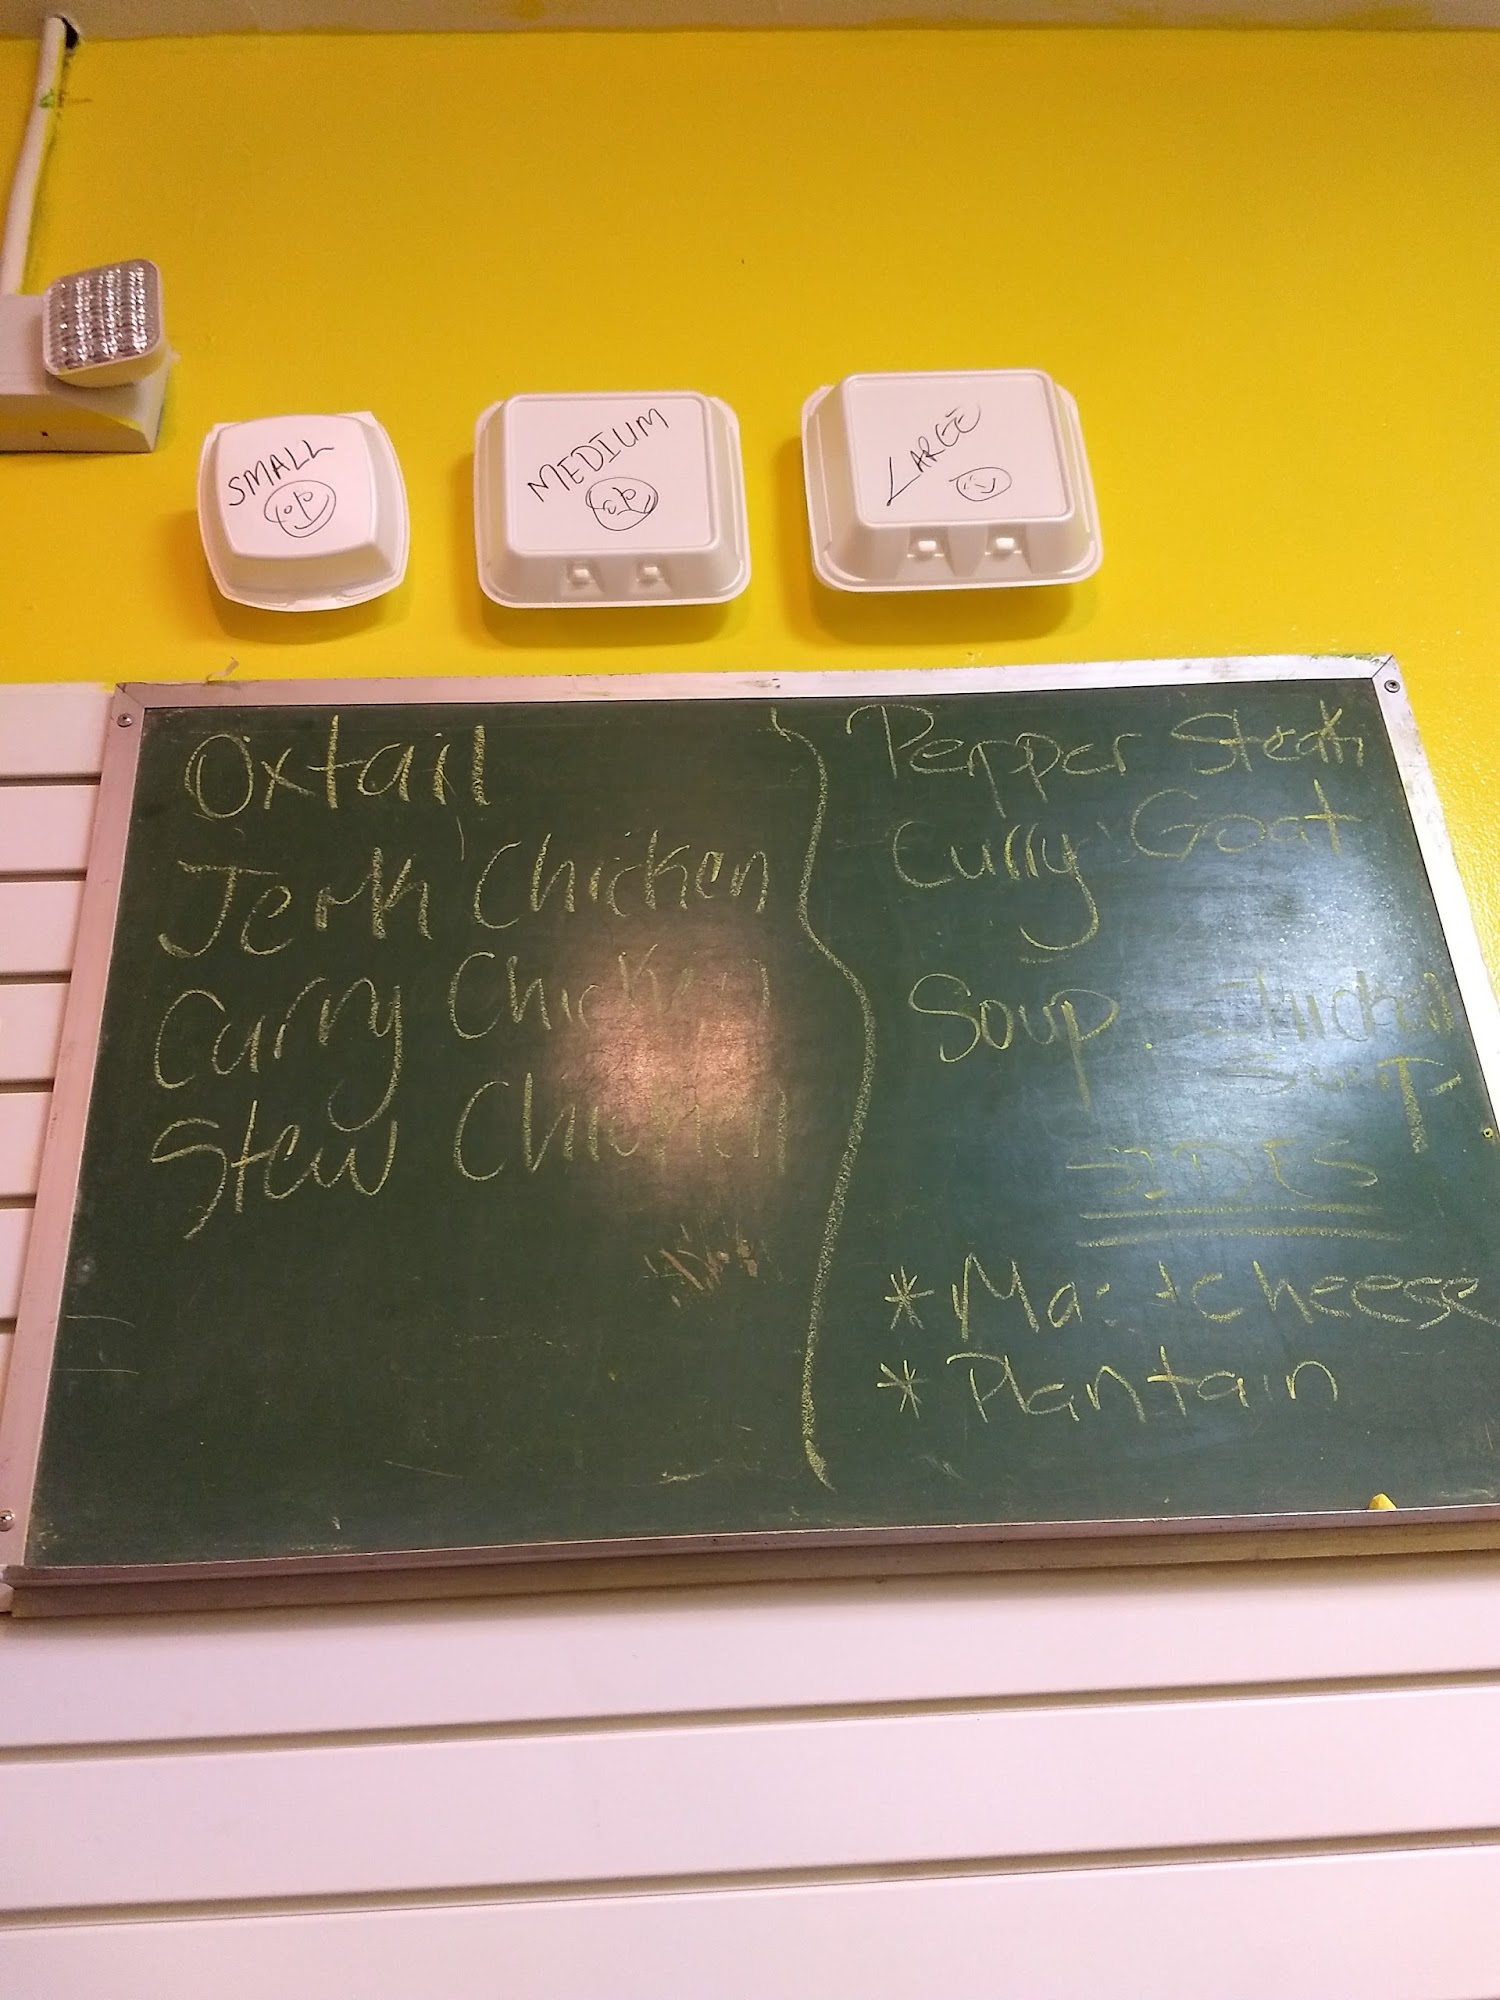 SMALL
MEDIUM
LARGE
Oxtail
Jerk Chicken
Curry Chicken
Stew Chicken
Pepper Steak
Curry Goat
Soup Chicken
SIDES
* Mac + cheese
* Plantain